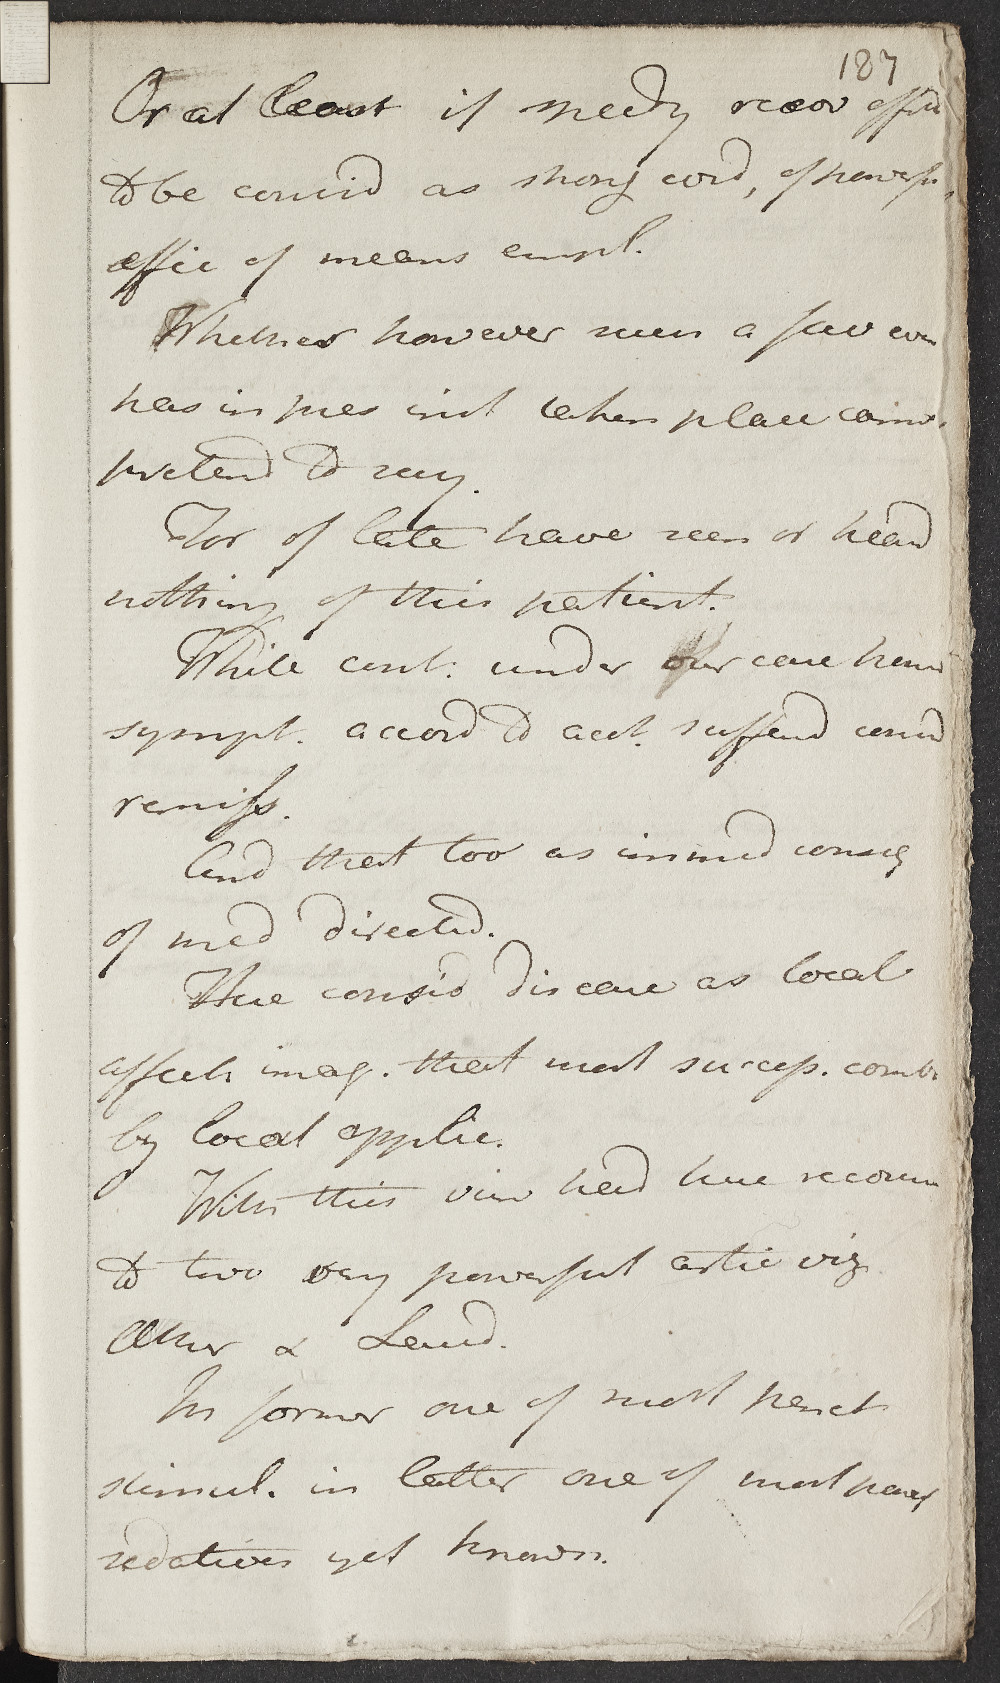 187
Or at least if speedy recov affor
to be consid as strong evid, of powerful
effic of means empl.
Whether however such a fav even
has in pres inst taken place cannot
pretend to say.
For of late have seen or heard
nothing of this patient.
While cont: under our care however
sympt. accord to acct. suffered consid
remiss.
And that too as immed conseq
of med directed.
Here consid disease as local
affect imag. that most success. comb
by local applic.
With this view had here recourse
to two very powerful artic viz
Æther & Laud.
In former one of most penet
stimul. in latter one of most power
sedatives yet known.